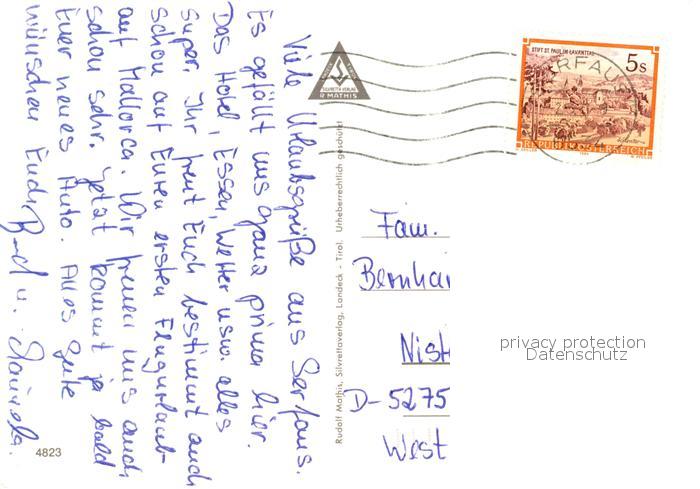 Viele Urlaubsgrüße aus Serfaus.
Es gefällt uns ganz prima hier.
Das Hotel, Essen, Wetter usw. alles
super. Ihr freut Euch bestimmt auch
schon auf Euren ersten Flugurlaub
auf Mallorca. Wir freuen uns auch
schon sehr. Jetzt kommt ja bald
Euer neues Auto. Alles Gute
wünschen Euch
u.
4823
SILVRETTA VERLAG
R MATHIS
Rudolf Mathis, Silvrettaverlag, Landeck - Tirol. Urheberrechtlich geschützt
STIFT ST. PAUL IM LAVANTTAL
5s
REPUBLIK ÖSTERREICH
RFAU
Fam.
Bernhar
Nist
D-5275
West
privacy protection
Datenschutz